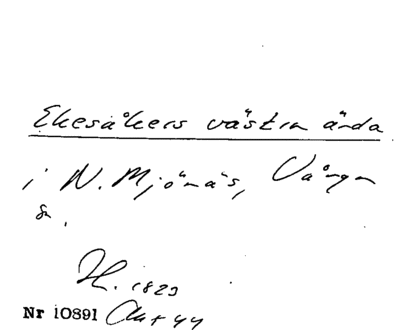 Ekesåkers västra ända
i N. Mjönäs, Vånga
sn.
H. 1823
Nr 10891